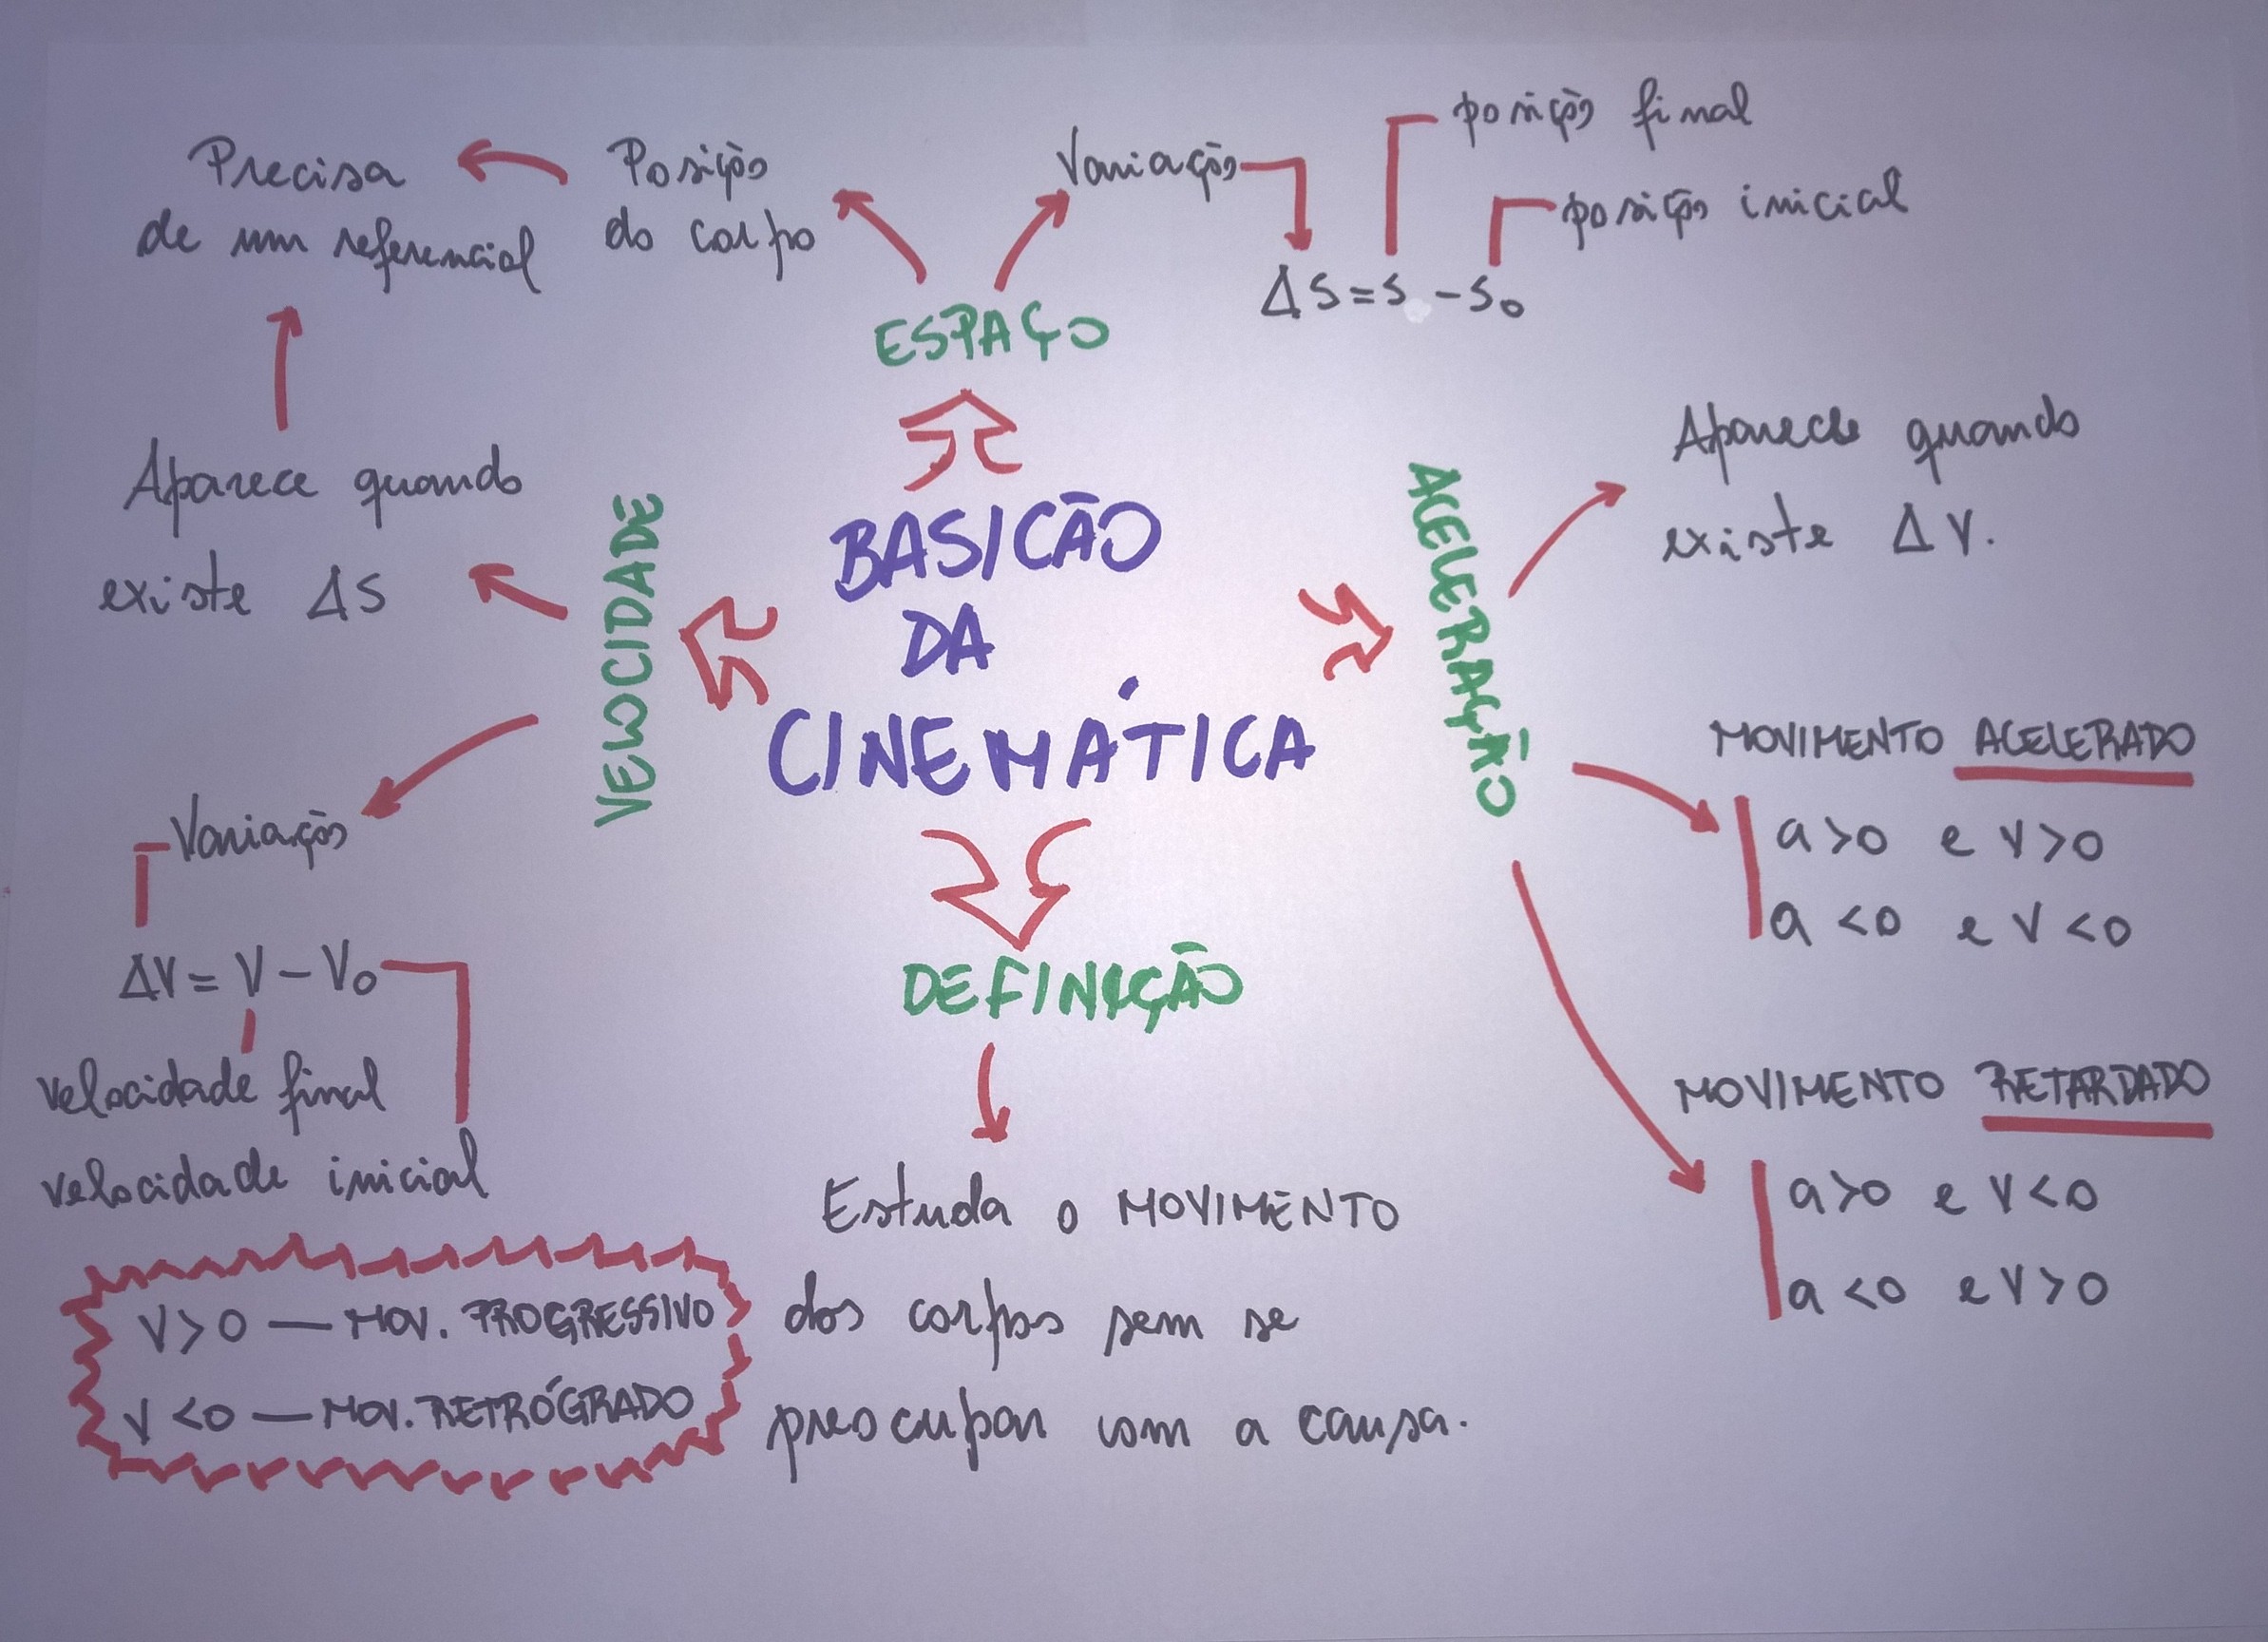 BASICÃO
DA
CINEMÁTICA
ESPAÇO
Posição
do corpo
Precisa
de um referencial
Variação
posição final
posição inicial
ΔS=S-S₀
VELOCIDADE
Aparece quando
existe ΔS
Variação
ΔV=V-V₀
velocidade final
velocidade inicial
V>0 — MOV. PROGRESSIVO
V<0 — MOV. RETRÓGRADO
DEFINIÇÃO
Estuda o MOVIMENTO
dos corpos sem se
preocupar com a causa.
ACELERAÇÃO
Aparece quando
existe ΔV.
MOVIMENTO ACELERADO
a>0 e V>0
a<0 e V<0
MOVIMENTO RETARDADO
a>0 e V<0
a<0 e V>0